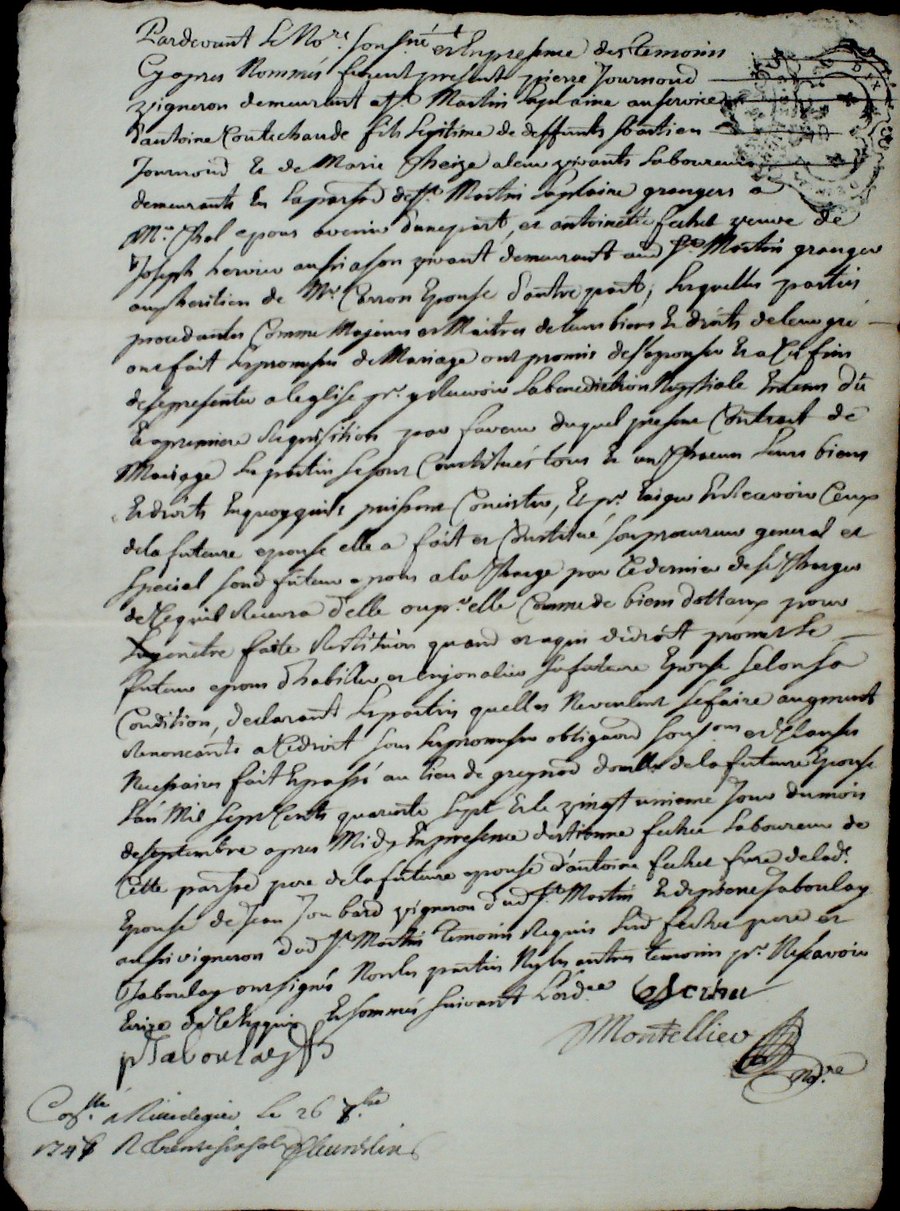 Pardevant Le No.re soussiné et En presence des temoins
Cy apres Nommés furent présent pierre Journoud
vigneron demeurant a St. Martin Laplaine au service
d'antoine Coutechaude fils Legitime de deffunts
Journoud & de Marie a leur vivants Laboureurs
demeurants En La parsse de St. Martin Laplaine grangers a
Mr. Thol epoux avenir d'une part, et antoinette veuve de
Joseph hervier vivant demeurant aud St. Martin granger
aux heritiers de Mr. Carron Epouse d'autre part; Lesquelles parties
procedantes Comme Majeurs et Maitres de leurs biens & droits de leur gré
ont fait Les promesses de Mariage ont promis de s'epouser & a Ces fins
de se presenter a l'eglise pr. y Recevoir La benediction Nuptiale
La premiere Requisition par faveur duquel present Contrat de
Mariage Les parties se sont Constitués tous & un Chacun Leurs biens
& droits En quoy qu'ils puissent Consister, & pr. Exiger & Recevoir Ceux
de la future epouse elle a fait et Constitué son procureur general et
special sond futur epoux a la Charge par Ce dernier de se Charger
de Ce qu'il Recevra d'elle ou pr. elle Comme de biens dottaux pour
Luy en etre faite Restitution quand et a qui de droit promet Le
futur epoux d'habiller et Enjoualier sa future Epouse selon sa
Condition, declarant Les parties qu'elles Ne veulent se faire augment
Renoncants a Ce droit sous Les promesses obligaons et Clauses
Necessaires fait & passé au Lieu de gregnod de la future Epouse
L'an Mil sept Cents quarante sept & le vingt unieme Jour du mois
de septembre apres Midy En presence d'estienne Laboureur de
Cette parsse pere de la future epouse d'antoine frere de lad.
Epouse de Jean Joubard vigneron dud St. Martin & de pierre Jaboulay
aussi vigneron dud St. Martin temoins Requis Led pere et
Jaboulay ont signés Non les parties Ny les autres temoins pr. Ne scavoir
Ecrire de Ce Enquis & sommés suivant L'ord.ce
pJaboulay Montellier
No.re
Con.llé a Rivedegier Le 26 7bre
1747 R trente six sols